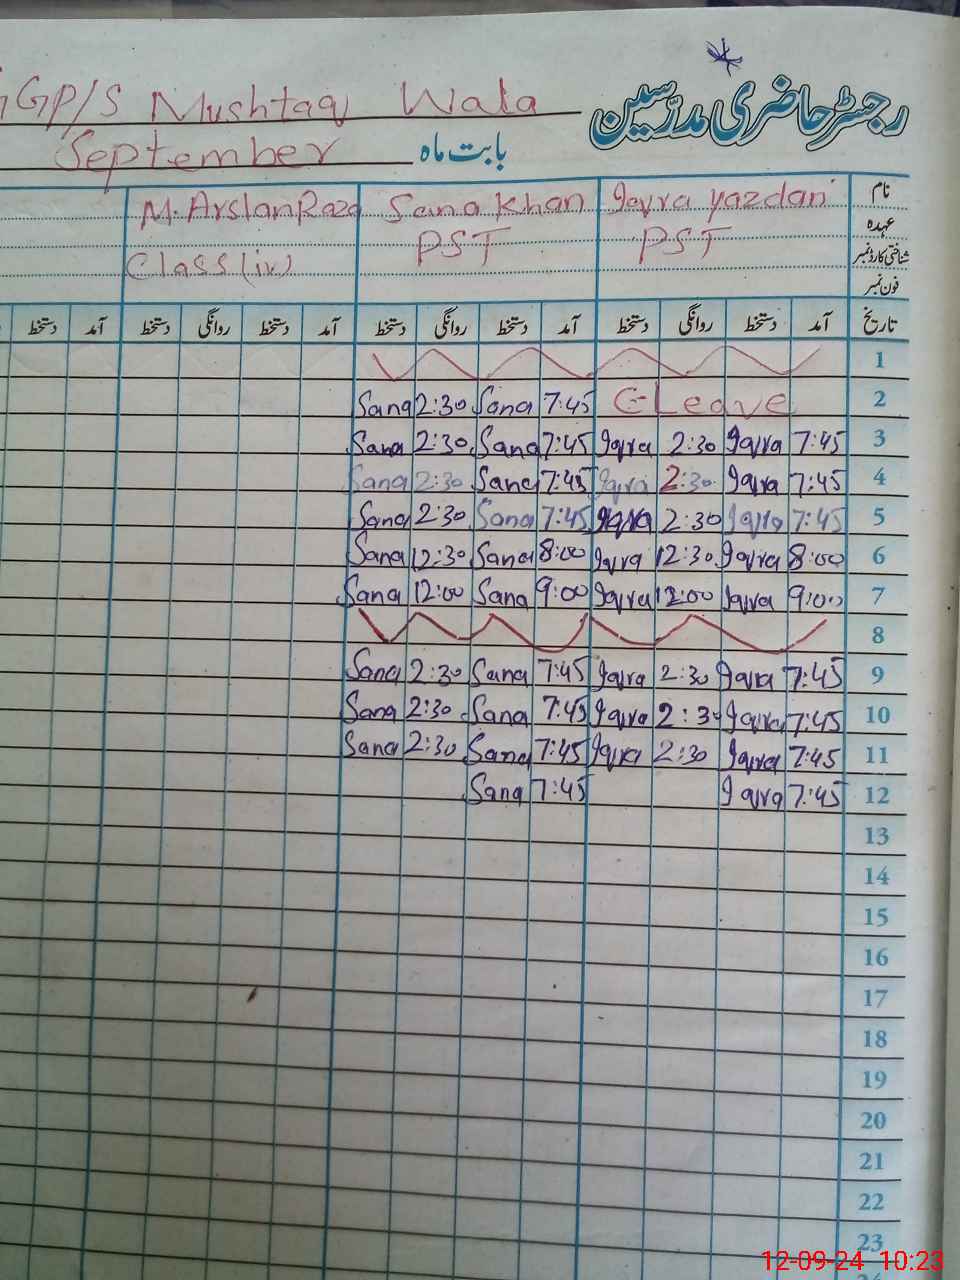 GGP/S Mushtaq Wala رجسٹر حاضری مدرسین
September بابت ماہ
M. Arslan Raza Sana Khan Iqra Yazdan نام
عہدہ
Class (iv) PST PST شناختی کارڈ نمبر
فون نمبر
دستخط آمد دستخط روانگی دستخط آمد دستخط روانگی دستخط آمد دستخط روانگی دستخط آمد تاریخ
1
Sana 2:30 Sana 7:45 C-Leave 2
Sana 2:30 Sana 7:45 Iqra 2:30 Iqra 7:45 3
Sana 2:30 Sana 7:45 Iqra 2:30 Iqra 7:45 4
Sana 2:30 Sana 7:45 Iqra 2:30 Iqra 7:45 5
Sana 12:30 Sana 8:00 Iqra 12:30 Iqra 8:00 6
Sana 12:00 Sana 9:00 Iqra 12:00 Iqra 9:00 7
8
Sana 2:30 Sana 7:45 Iqra 2:30 Iqra 7:45 9
Sana 2:30 Sana 7:45 Iqra 2:30 Iqra 7:45 10
Sana 2:30 Sana 7:45 Iqra 2:30 Iqra 7:45 11
Sana 7:45 Iqra 7:45 12
13
14
15
16
17
18
19
20
21
22
23
12-09-24 10:23